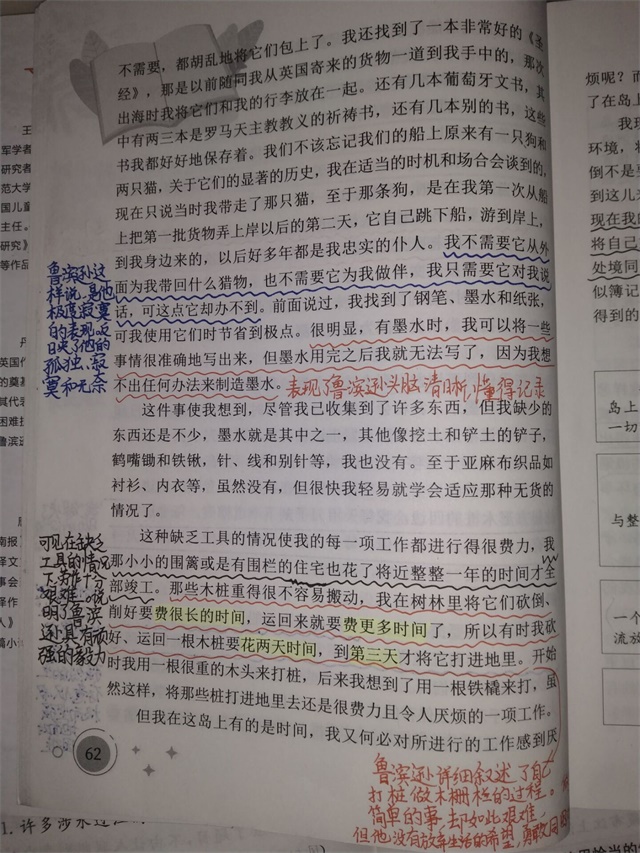 不需要，都胡乱地将它们包上了。我还找到了一本非常好的《圣
经》，那是以前随同我从英国寄来的货物一道到我手中的，那次
出海时我将它们和我的行李放在一起。还有几本葡萄牙文书，其
中有两三本是罗马天主教教义的祈祷书，还有几本别的书，这些
书我都好好地保存着。我们不该忘记我们的船上原来有一只狗和
两只猫，关于它们的显著的历史，我在适当的时机和场合会谈到的，
现在只说当时我带走了那只猫，至于那条狗，是在我第一次从船
上把第一批货物弄上岸以后的第二天，它自己跳下船，游到岸上，
到我身边来的，以后好多年都是我忠实的仆人。我不需要它从外
面为我带回什么猎物，也不需要它为我做伴，我只需要它对我说
话，可这点它却办不到。前面说过，我找到了钢笔、墨水和纸张，
可我使用它们时节省到极点。很明显，有墨水时，我可以将一些
事情很准确地写出来，但墨水用完之后我就无法写了，因为我想
不出任何办法来制造墨水。
表现了鲁滨逊头脑清晰，懂得记录
鲁滨逊这
样说，是他
极度寂寞
的表现，反
映了他的
孤独、寂
寞和无奈
这件事使我想到，尽管我已收集到了许多东西，但我缺少的
东西还是不少，墨水就是其中之一，其他像挖土和铲土的铲子，
鹤嘴锄和铁锹，针、线和别针等，我也没有。至于亚麻布织品如
衬衫、内衣等，虽然没有，但很快我轻易就学会适应那种无货的
情况了。
这种缺乏工具的情况使我的每一项工作都进行得很费力，我
那小小的围篱或是有围栏的住宅也花了将近整整一年的时间才全
部竣工。那些木桩重得很不容易搬动，我在树林里将它们砍倒、
削好要费很长的时间，运回来就要费更多时间了，所以有时我砍
好、运回一根木桩要花两天时间，到第三天才将它打进地里。开始
时我用一根很重的木头来打桩，后来我想到了用一根铁橇来打，虽
然这样，将那些桩打进地里去还是很费力且令人厌烦的一项工作。
但我在这岛上有的是时间，我又何必对所进行的工作感到厌
可见在缺乏
工具的情况
下，工作十分
艰难。说
明了鲁滨
逊具有顽
强的毅力
62
鲁滨逊详细叙述了自己
打桩做木栅栏的过程。
简单的事，却如此艰难，
但他没有放弃生活的希望，勇敢
王
军学者
研究者
范大学
国儿童
主任。
研究》
等作品
英国作
的奠基
其代表
困难挂
鲁滨逊
南报
译文
事会
译作
人》
篇小
烦呢？而
了在岛上
我现
环境，将
倒不是要
到这儿来
现在我
将自己
处境同
似簿记
得到的
岛上
一切
与整
一个
流放